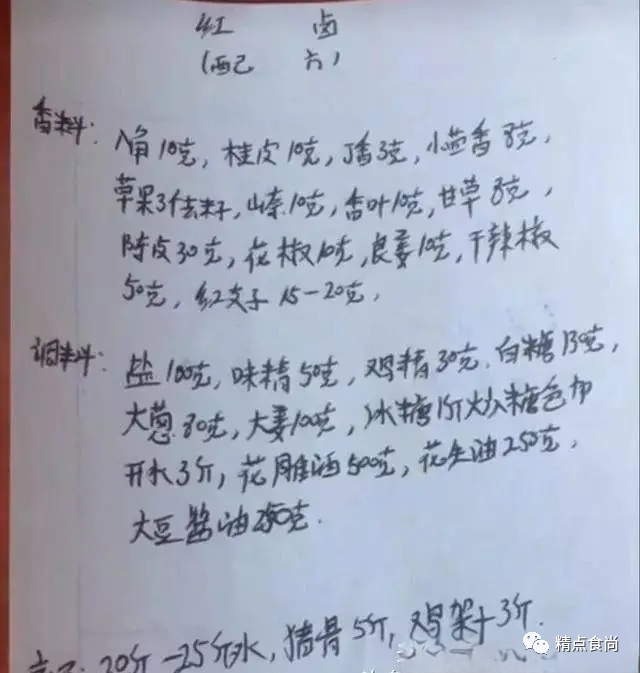 红 卤
(配 方)
香料: 八角10克, 桂皮10克, 丁香3克, 小茴香8克,
草果3个去籽, 山柰10克, 香叶10克, 甘草8克,
陈皮30克, 花椒10克, 良姜10克, 干辣椒
50克, 红支子15-20克,
调料: 盐100克, 味精50克, 鸡精30克, 白糖130克,
大葱80克, 大姜100克, 冰糖1斤炒糖色加
开水3斤, 花雕酒500克, 花生油250克,
大豆酱油250克.
: 20斤-25斤水, 猪骨5斤, 鸡架3斤.
精点食尚